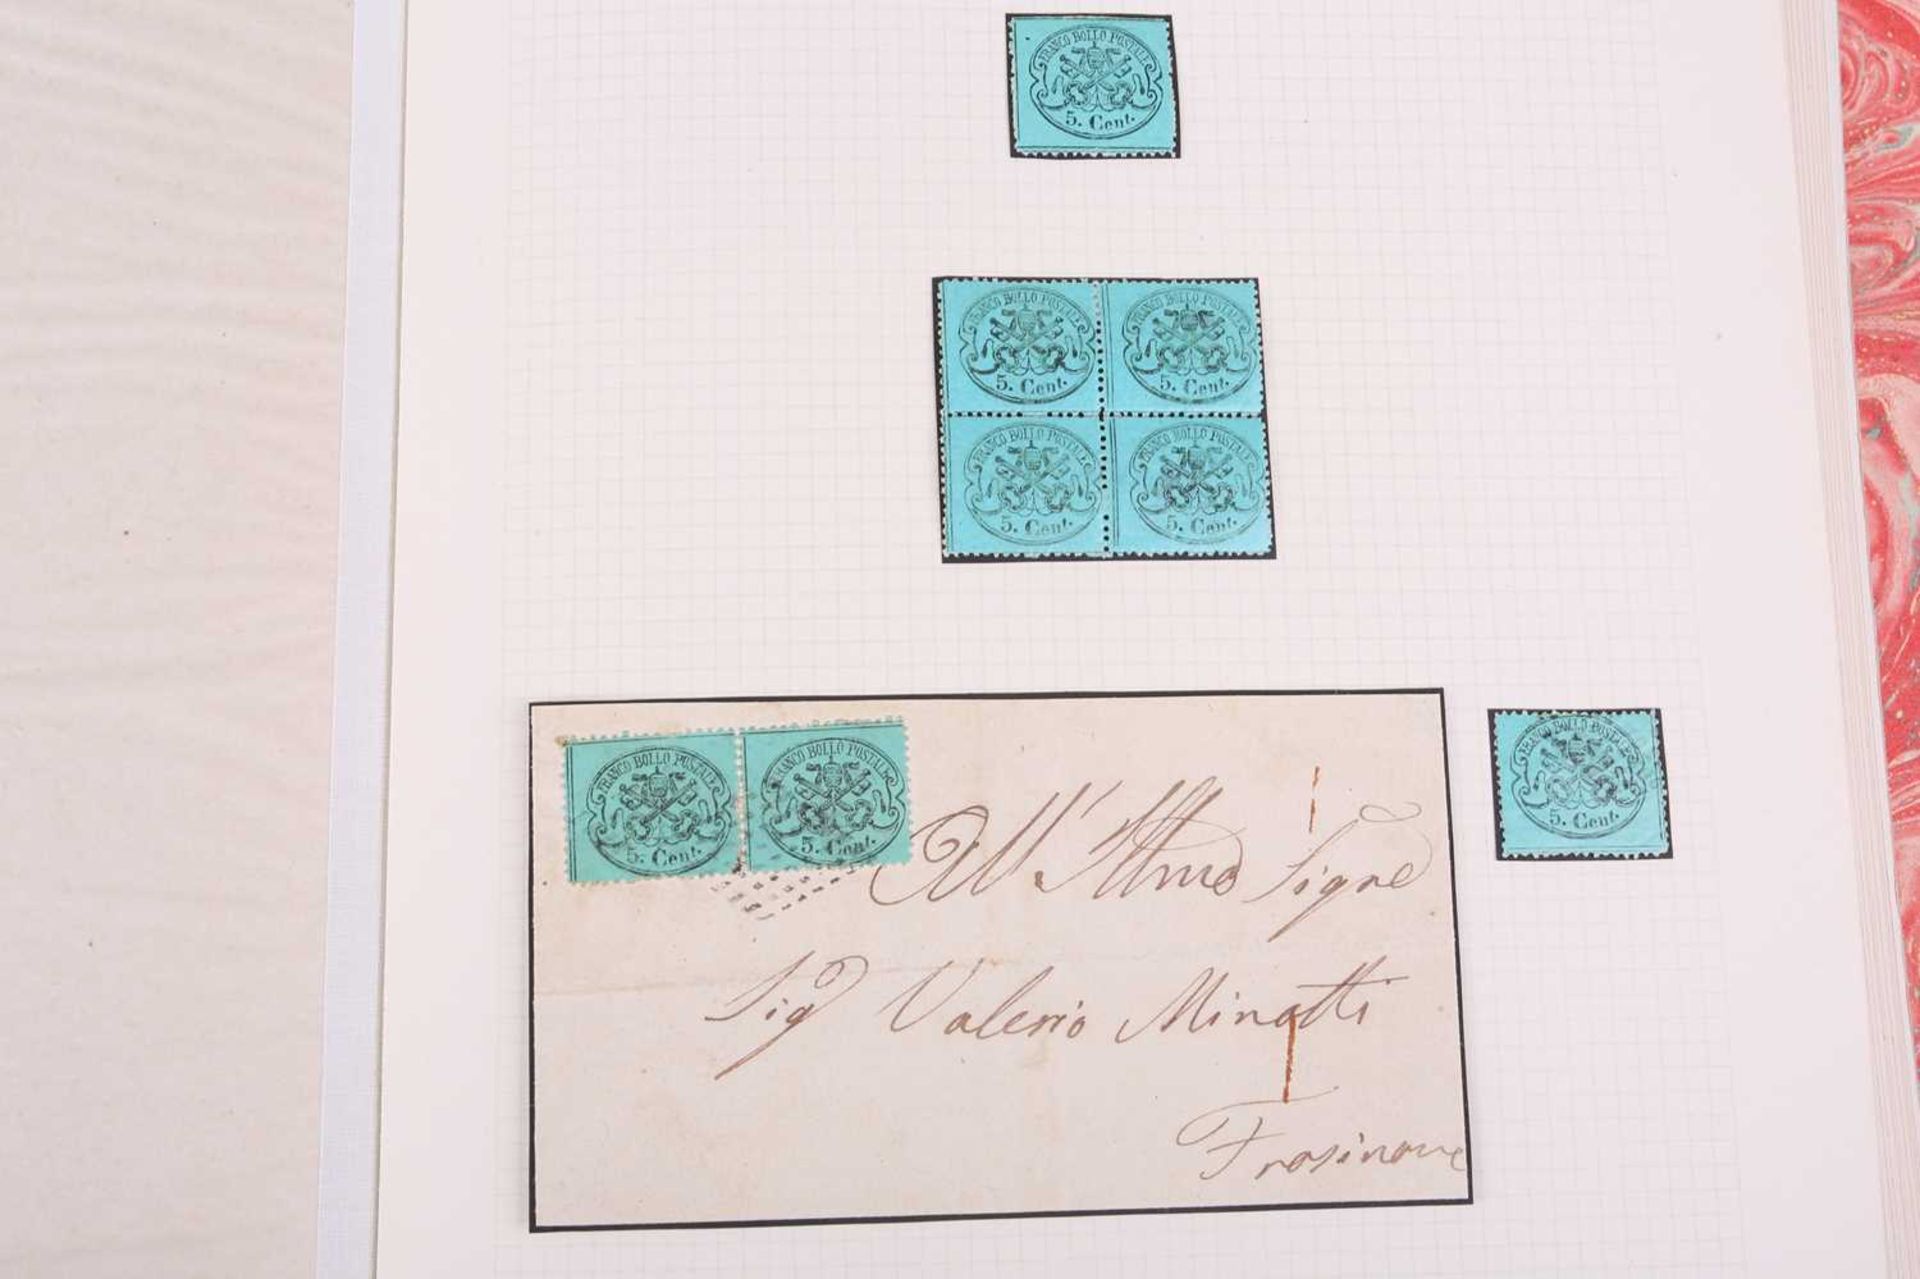 FRANCO BOLLO POSTALE
5. Cent.
FRANCO BOLLO POSTALE
5. Cent.
FRANCO BOLLO POSTALE
5. Cent.
FRANCO BOLLO POSTALE
5. Cent.
FRANCO BOLLO POSTALE
5. Cent.
FRANCO BOLLO POSTALE
5. Cent.
FRANCO BOLLO POSTALE
5. Cent.
FRANCO BOLLO POSTALE
5. Cent.
All' Illmo Signe
Sig Valerio Minotti
Frosinone